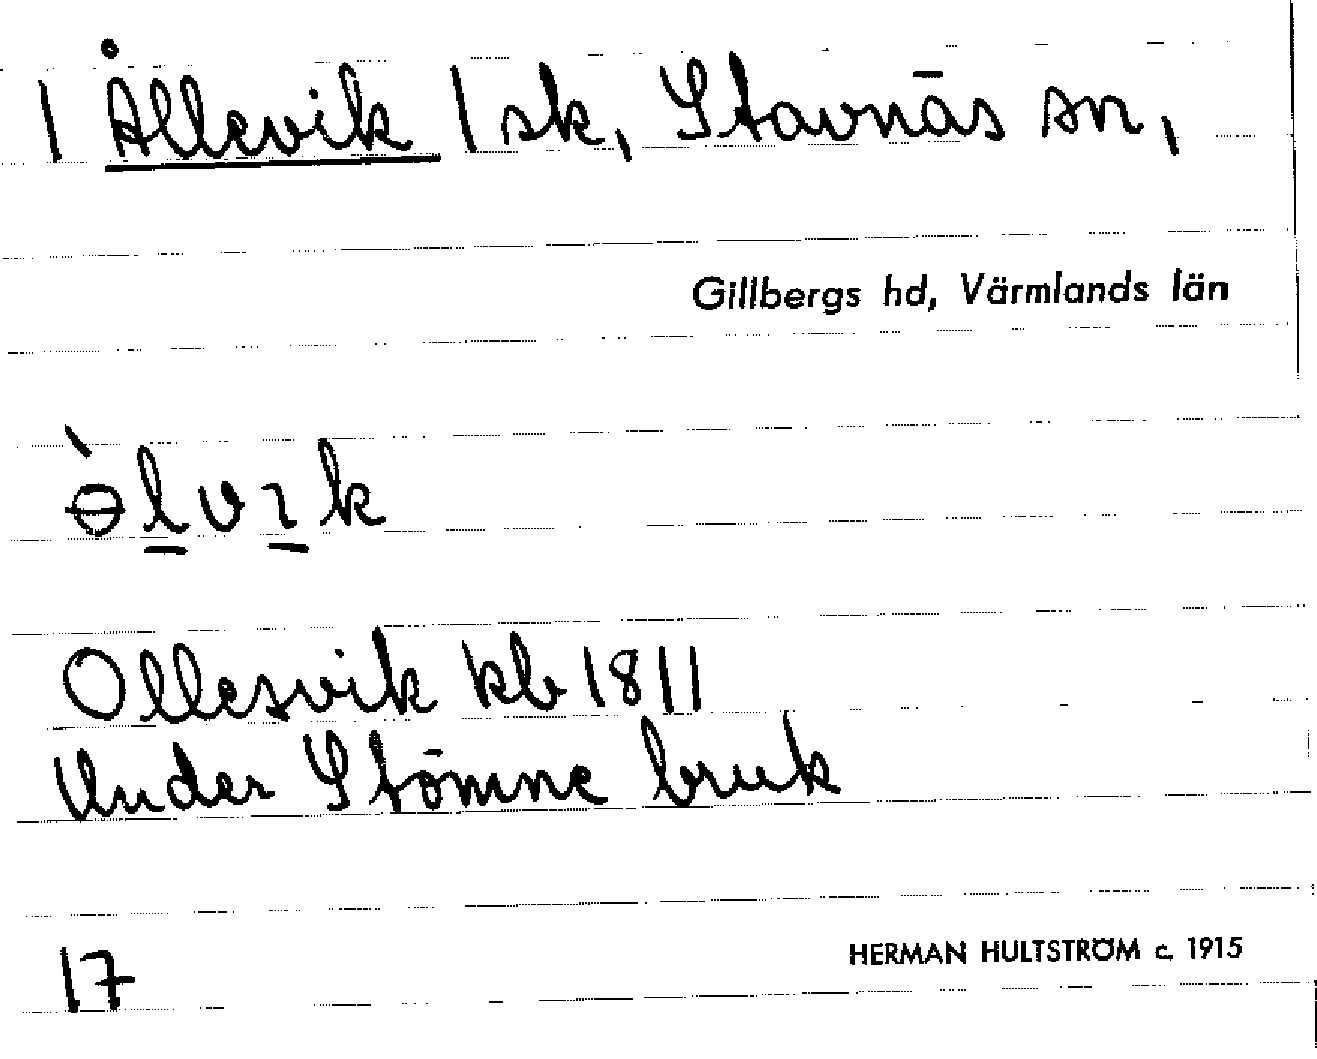 | Ållevik | sk, Stavnäs sn,
Gillbergs hd, Värmlands län
ɵ̀lvɪk
Ollesvik kb 1811
Under Stömne bruk
17
HERMAN HULTSTRÖM c. 1915